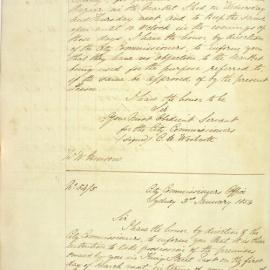 in the Market Shed on Wednesday
and Thursday next, and to keep the same
open until 10 o'clock in the evening of
those days, I have the honor by direction
of the City Commissioners, to inform you
that they have no objection to the Market
being used for the purpose referred to,
if the same be approved of by the present
I have the honor to be
Sir
Your Most Obedient Servant
for the City Commissioners
(signed)
City Commissioners Office
Sydney 3rd January 1854
Sir
I have the honor by direction of the
City Commissioners, to inform you that it is their
intention to take possession of the premises
owned by you in Street East on the first
day of March next